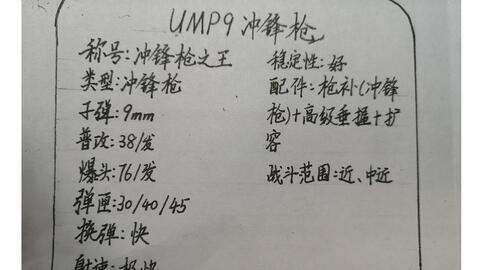 UMP9冲锋枪
称号:冲锋枪之王
类型:冲锋枪
子弹:9mm
普攻:38/发
爆头:76/发
弹匣:30/40/45
换弹:快
射速:极快
稳定性:好
配件:枪补(冲锋
枪)+高级垂握+扩
容
战斗范围:近、中近